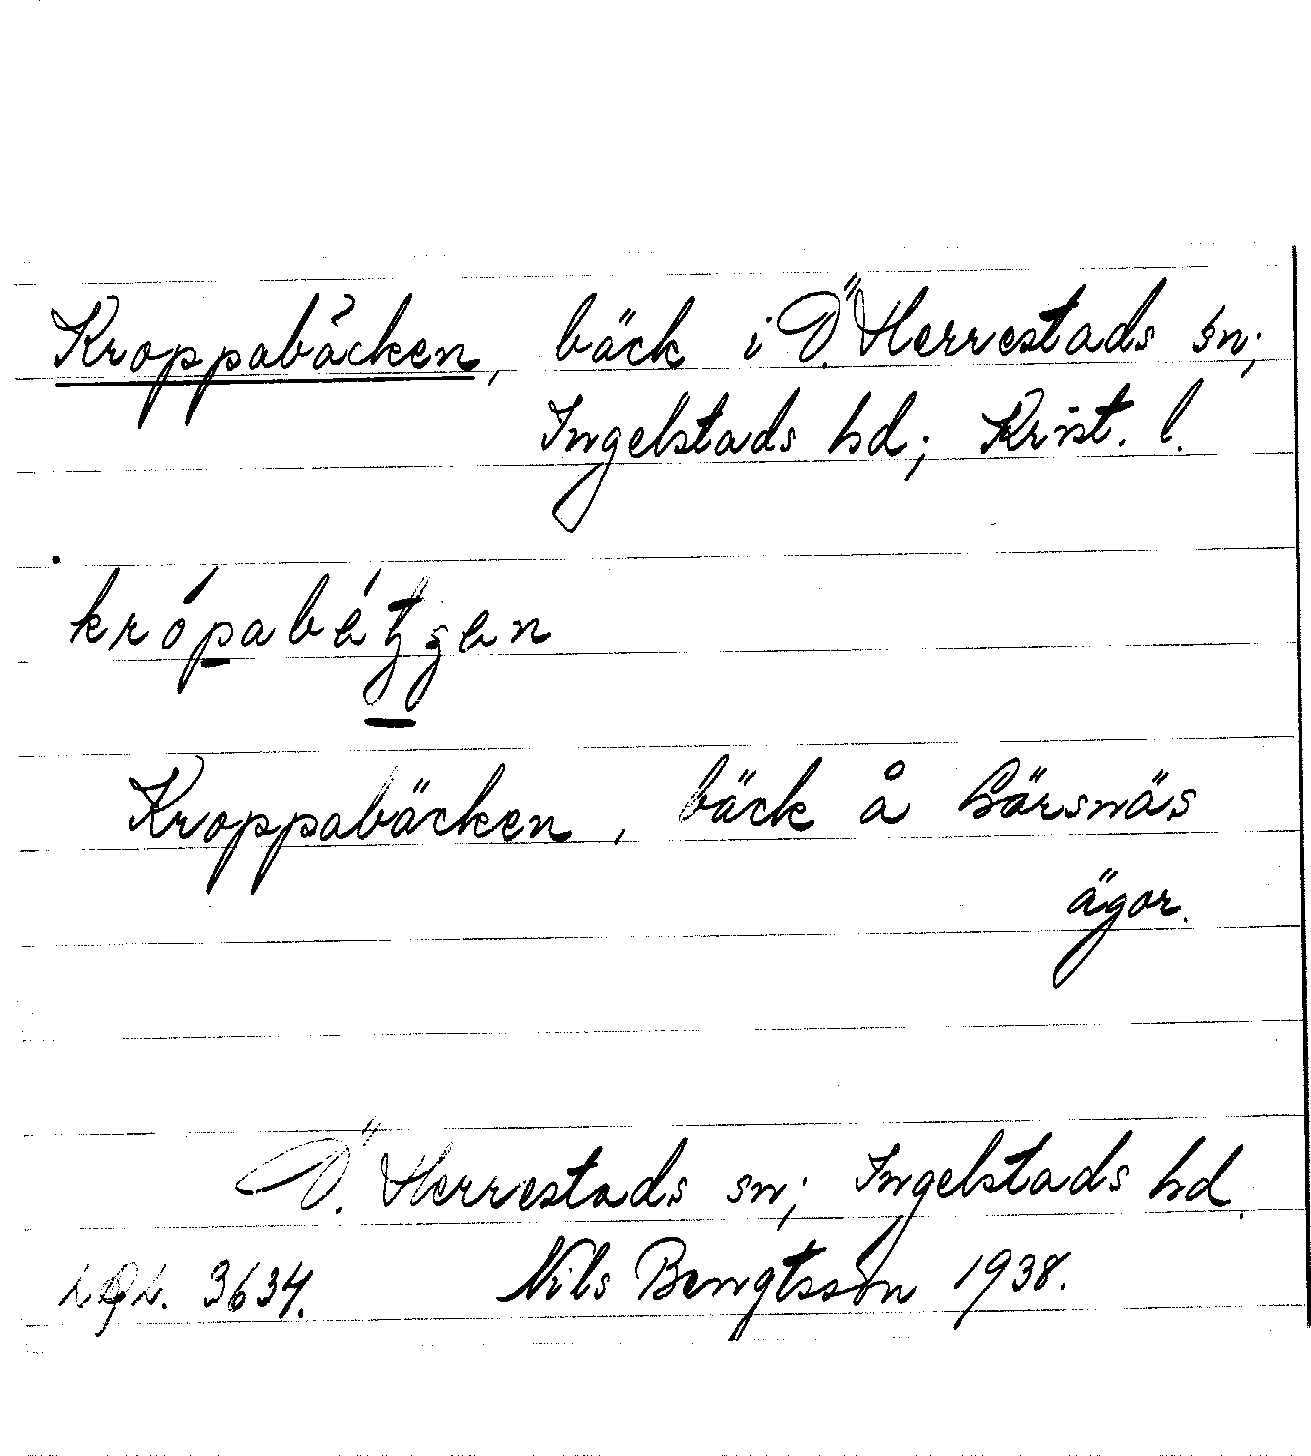 Kroppabäcken, bäck i Ö. Herrestads sn;
Ingelstads hd; Krist. l.
Kroppabäcken, bäck å Hörsnäs
ägor.
Ö. Herrestads sn; Ingelstads hd.
3634. Nils Bengtsson 1938.